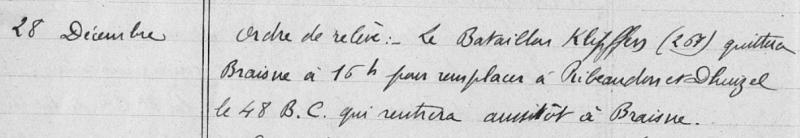 28 Décembre Ordre de relève :- Le Bataillon Klipffers (267) quittera
Braisne à 16 h pour remplacer à Ribeaudon et Dhuizel
le 48 B.C. qui rentrera aussitôt à Braisne.